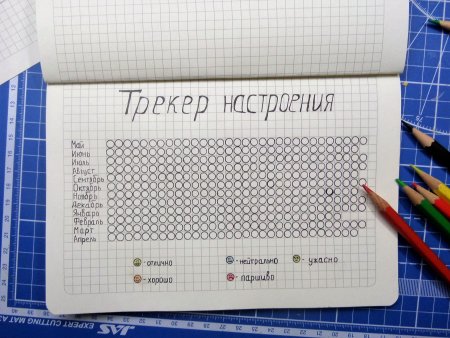 Трекер настроения
Май
Июнь
Июль
Август
Сентябрь
Октябрь
Ноябрь
Декабрь
Январь
Февраль
Март
Апрель
-отлично -нейтрально -ужасно
-хорошо -паршиво
JAS EXPERT CUTTING MAT A3